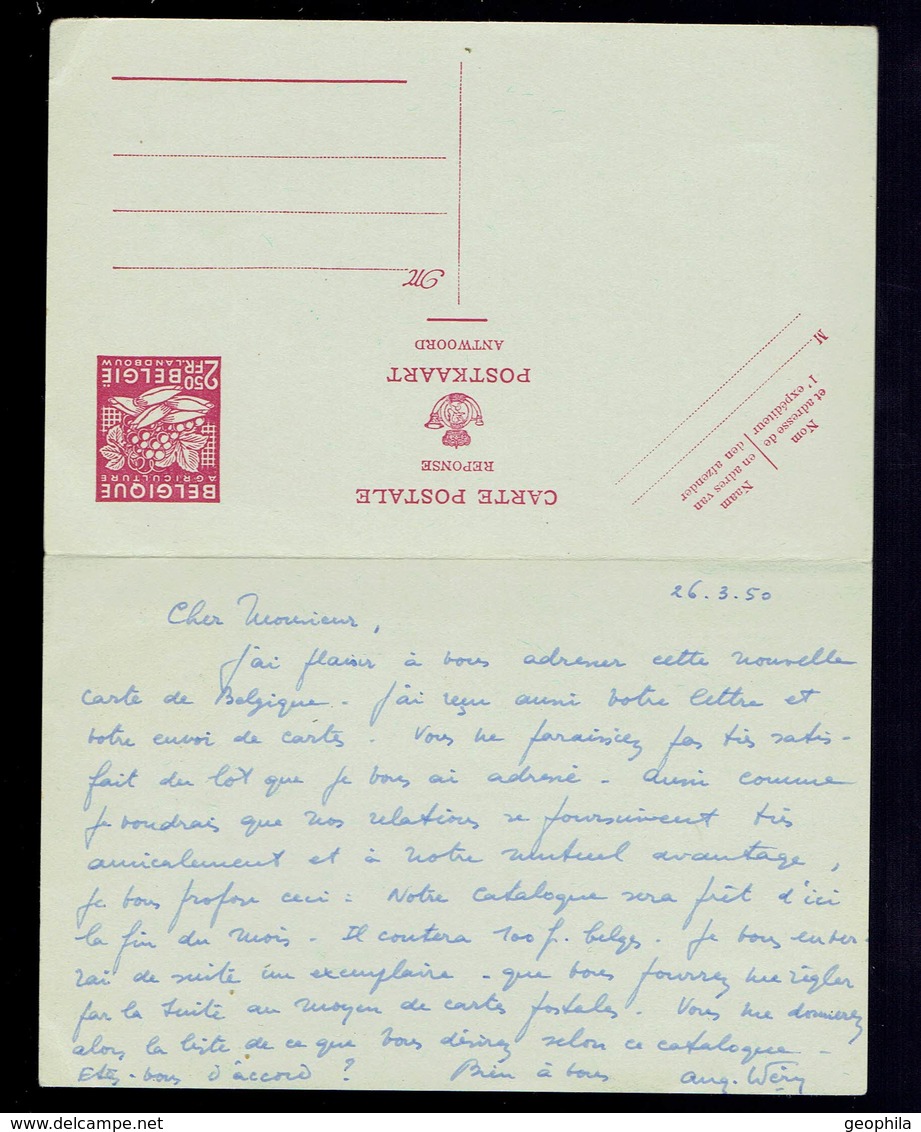 BELGIQUE
AGRICULTURE
2 50
FR. LANDBOUW
BELGIË
CARTE POSTALE
REPONSE
POSTKAART
ANTWOORD
M
Nom
et adresse de
l'expéditeur
Naam
en adres van
den afzender
M
26.3.50
Cher Monsieur,
J'ai plaisir à vous adresser cette nouvelle
carte de Belgique. J'ai reçu aussi votre lettre et
votre envoi de cartes. Vous ne paraissiez pas très satis-
fait du lot que je vous ai adressé. Aussi comme
je voudrais que nos relations se poursuivent très
amicalement et à notre mutuel avantage,
je vous propose ceci : Notre catalogue sera prêt d'ici
la fin du mois. Il coutera 100 f. belges. Je vous enver-
rai de suite un exemplaire - que vous pourrez me règler
par la suite au moyen de cartes postales. Vous me donnerez
alors la liste de ce que vous désirez selon ce catalogue -
Etes-vous d'accord ? Bien à vous Aug. Wéry
geophila